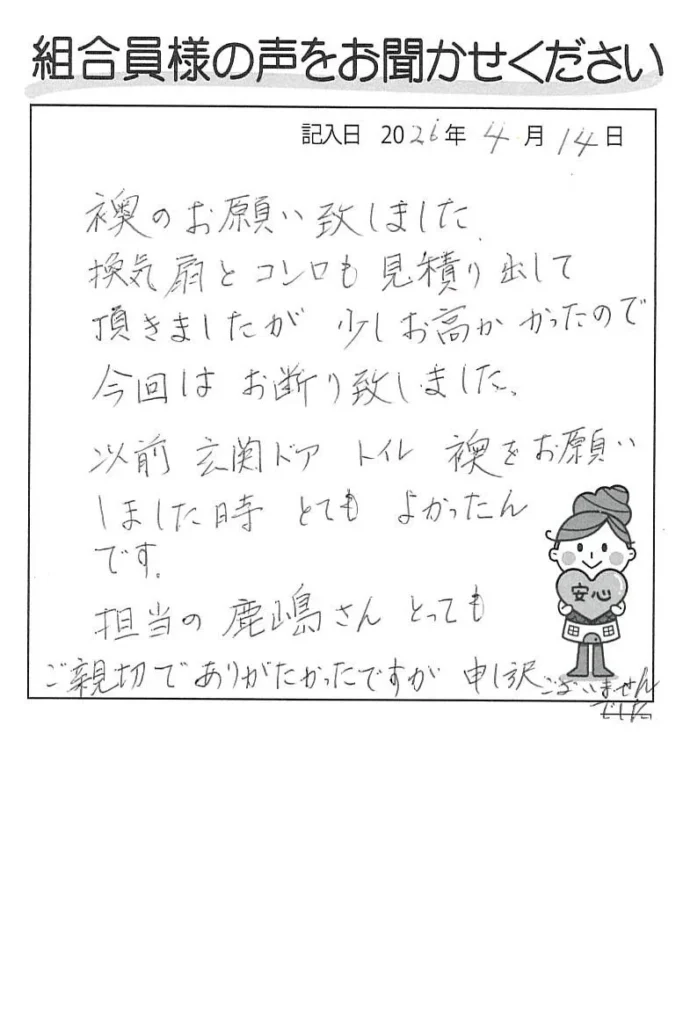 組合員様の声をお聞かせください
記入日 2026年 4月 14日
襖のお願い致しました。
換気扇とコンロも見積り出して
頂きましたが 少しお高かかったので
今回は お断り致しました。
以前 玄関ドア トイレ 襖をお願い
しました時 とても よかったん
です。
安心
担当の 鹿嶋さん とっても
ご親切でありがたかったですが 申し訳ございません
でした